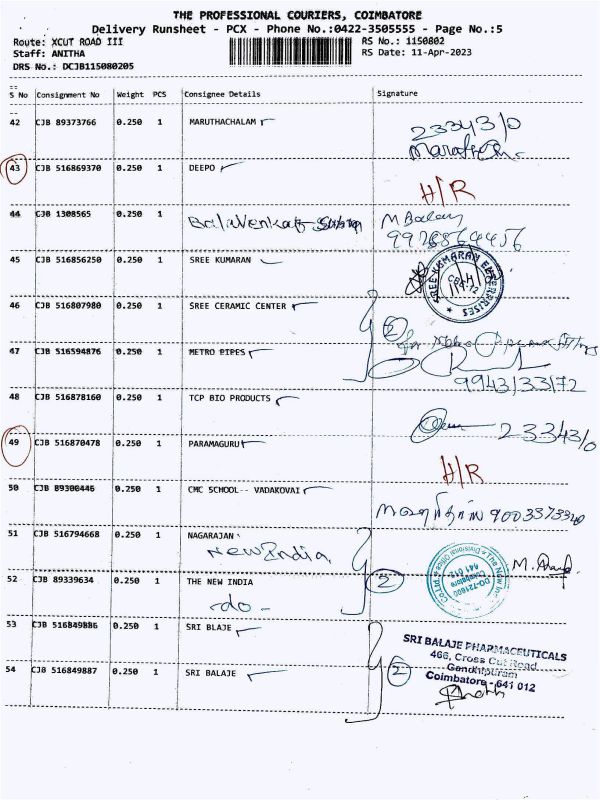 THE PROFESSIONAL COURIERS, COIMBATORE
Delivery Runsheet - PCX - Phone No.:0422-3505555 - Page No.:5
Route: XCUT ROAD III
RS No.: 1150802
Staff: ANITHA
RS Date: 11-Apr-2023
DRS No.: DCJB115080205
S No Consignment No Weight PCS Consignee Details Signature
42 CJB 89373766 0.250 1 MARUTHACHALAM
23343/0
43 CJB 516869370 0.250 1 DEEPO
H/R
44 CJB 1308565 0.250 1 M Balaji
45 CJB 516856250 0.250 1 SREE KUMARAN
SREE KUMARAN ENTERPRISES
CBE-12
46 CJB 516807980 0.250 1 SREE CERAMIC CENTER
2
47 CJB 516594876 0.250 1 METRO PIPES
for
9943133172
48 CJB 516878160 0.250 1 TCP BIO PRODUCTS
23343/0
49 CJB 516870478 0.250 1 PARAMAGURU
H/R
50 CJB 89300446 0.250 1 CMC SCHOOL-- VADAKOVAI
51 CJB 516794668 0.250 1 NAGARAJAN
New India
52 CJB 89339634 0.250 1 THE NEW INDIA
2
-do-
53 CJB 516849886 0.250 1 SRI BLAJE
54 CJB 516849887 0.250 1 SRI BALAJE
2
SRI BALAJE PHARMACEUTICALS
466, Cross Cut Road
Gandhipuram
Coimbatore - 641 012